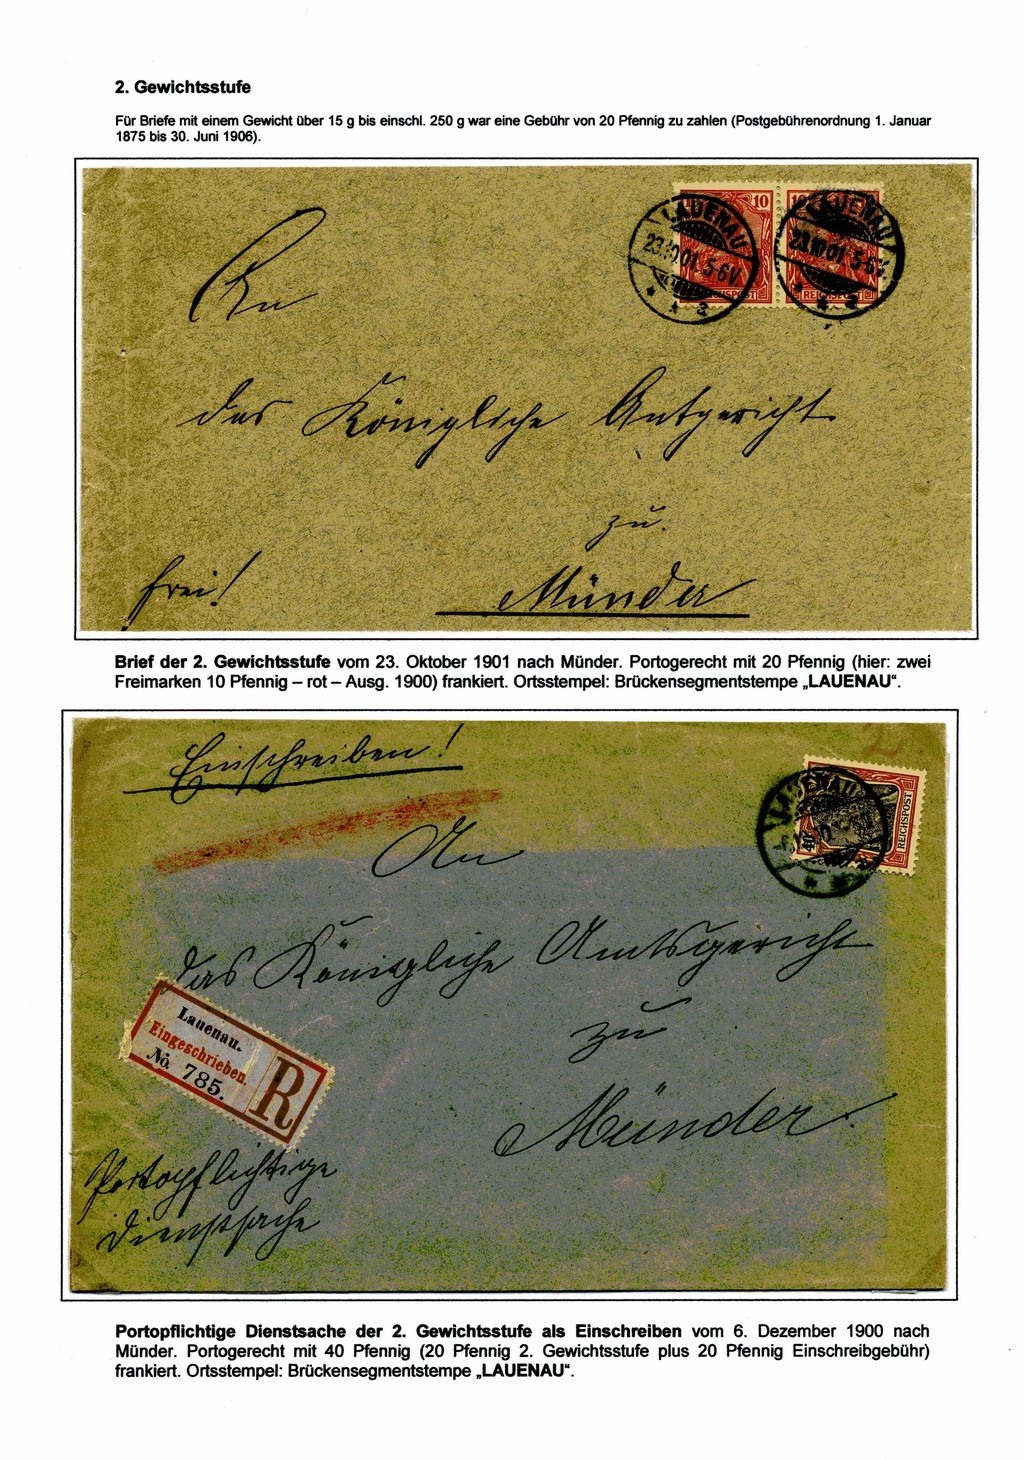 2. Gewichtsstufe
Für Briefe mit einem Gewicht über 15 g bis einschl. 250 g war eine Gebühr von 20 Pfennig zu zahlen (Postgebührenordnung 1. Januar
1875 bis 30. Juni 1906).
10 10
LAUENAU LAUENAU
23.10.01 5-6V. 23.10.01 5-6V.
* * a * * a
REICHSPOST
An
das Königliche Amtsgericht
zu
frei!
Münder
Brief der 2. Gewichtsstufe vom 23. Oktober 1901 nach Münder. Portogerecht mit 20 Pfennig (hier: zwei
Freimarken 10 Pfennig – rot – Ausg. 1900) frankiert. Ortsstempel: Brückensegmentstempe „LAUENAU“.
2
Einschreiben!
LAUENAU
40
REICHSPOST
An
das Königliche Amtsgericht
zu
Münder.
Lauenau.
Eingeschrieben.
No. 785.
R
Portopflichtige
Dienstsache
Portopflichtige Dienstsache der 2. Gewichtsstufe als Einschreiben vom 6. Dezember 1900 nach
Münder. Portogerecht mit 40 Pfennig (20 Pfennig 2. Gewichtsstufe plus 20 Pfennig Einschreibgebühr)
frankiert. Ortsstempel: Brückensegmentstempe „LAUENAU“.